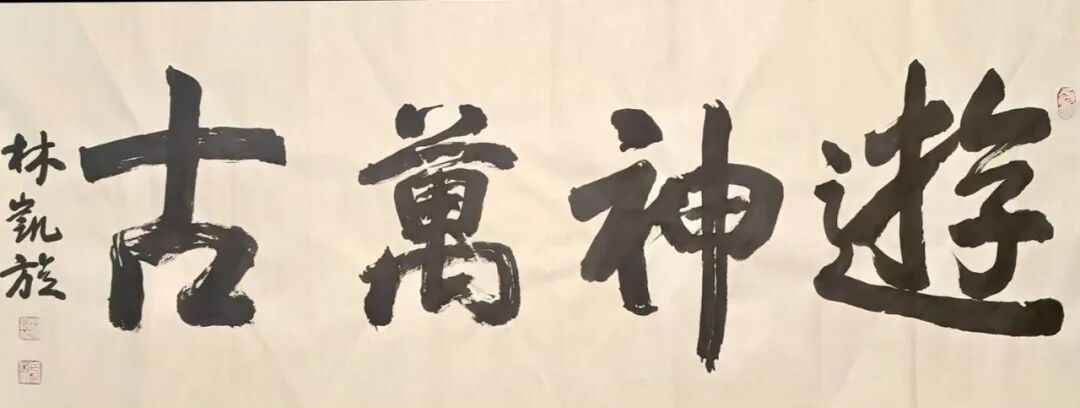 遊神萬古
林凱旋